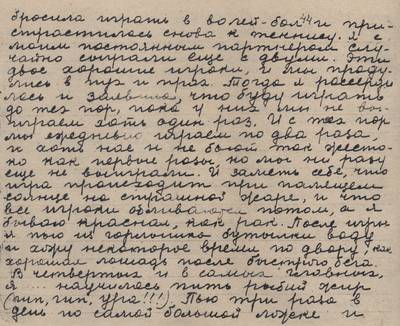 бросила играть в волей-бол и при-
страстилась снова к теннису. Я с
моим постоянным партнером слу-
чайно сыграли еще с двумя. Эти
двое хорошие игроки, и мы проду-
лись в пух и прах. Тогда я рассерди-
лась и заявила, что буду играть
до тех пор, пока у них мы не вы-
играем хоть один раз. И с тех пор
мы ежедневно играем по два раза,
и хотя нас и не бьют так жесто-
ко как первые разы, но мы ни разу
еще не выиграли. И заметь себе, что
игра происходит при палящем
солнце на страшной жаре, и что
все игроки обливаются потом, а я
бываю красная, как рак. После игры
я пью из горлышка бутылки воду
и хожу некоторое время по двору, как
хорошая лошадь после быстрого бега.
В четвертых и в самых главных,
я научилась пить рыбий жир
(гип, гип, ура!!!) Пью три раза в
день по самой большой ложке и